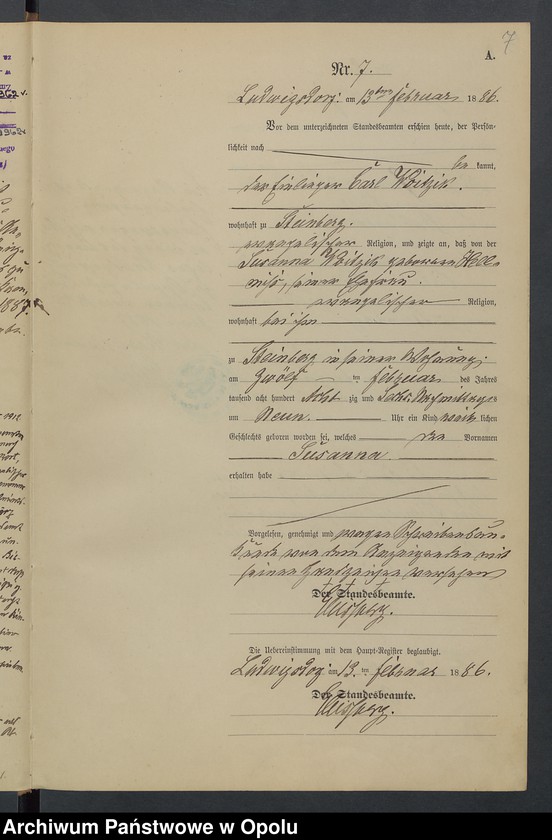 7
A.
Nr. 7.
Ludwigsdorf am 13ten Februar 1886.
Vor dem unterzeichneten Standesbeamten erschien heute, der Persön-
lichkeit nach
be kannt,
der Einlieger Carl Woitzik.
wohnhaft zu Steinberg.
evangelischer Religion, und zeigte an, daß von der
Susanna Woitzik geborenen
seiner Ehefrau.
evangelischer Religion,
wohnhaft bei ihm
zu Steinberg in seiner Wohnung.
am Zwölf ten Februar des Jahres
tausend acht hundert Acht zig und Sechs Nachmittags
um Neun. Uhr ein Kind weib lichen
Geschlechts geboren worden sei, welches den Vornamen
Susanna.
erhalten habe
Vorgelesen, genehmigt und wegen Schreibensun-
kunde von dem Anzeigenden mit
seinen Handzeichen versehen
+ + +
Der Standesbeamte.
Die Uebereinstimmung mit dem Haupt-Register beglaubigt.
Ludwigsdorf am 13. ten Februar 1886.
Der Standesbeamte.
Archiwum Państwowe w Opolu